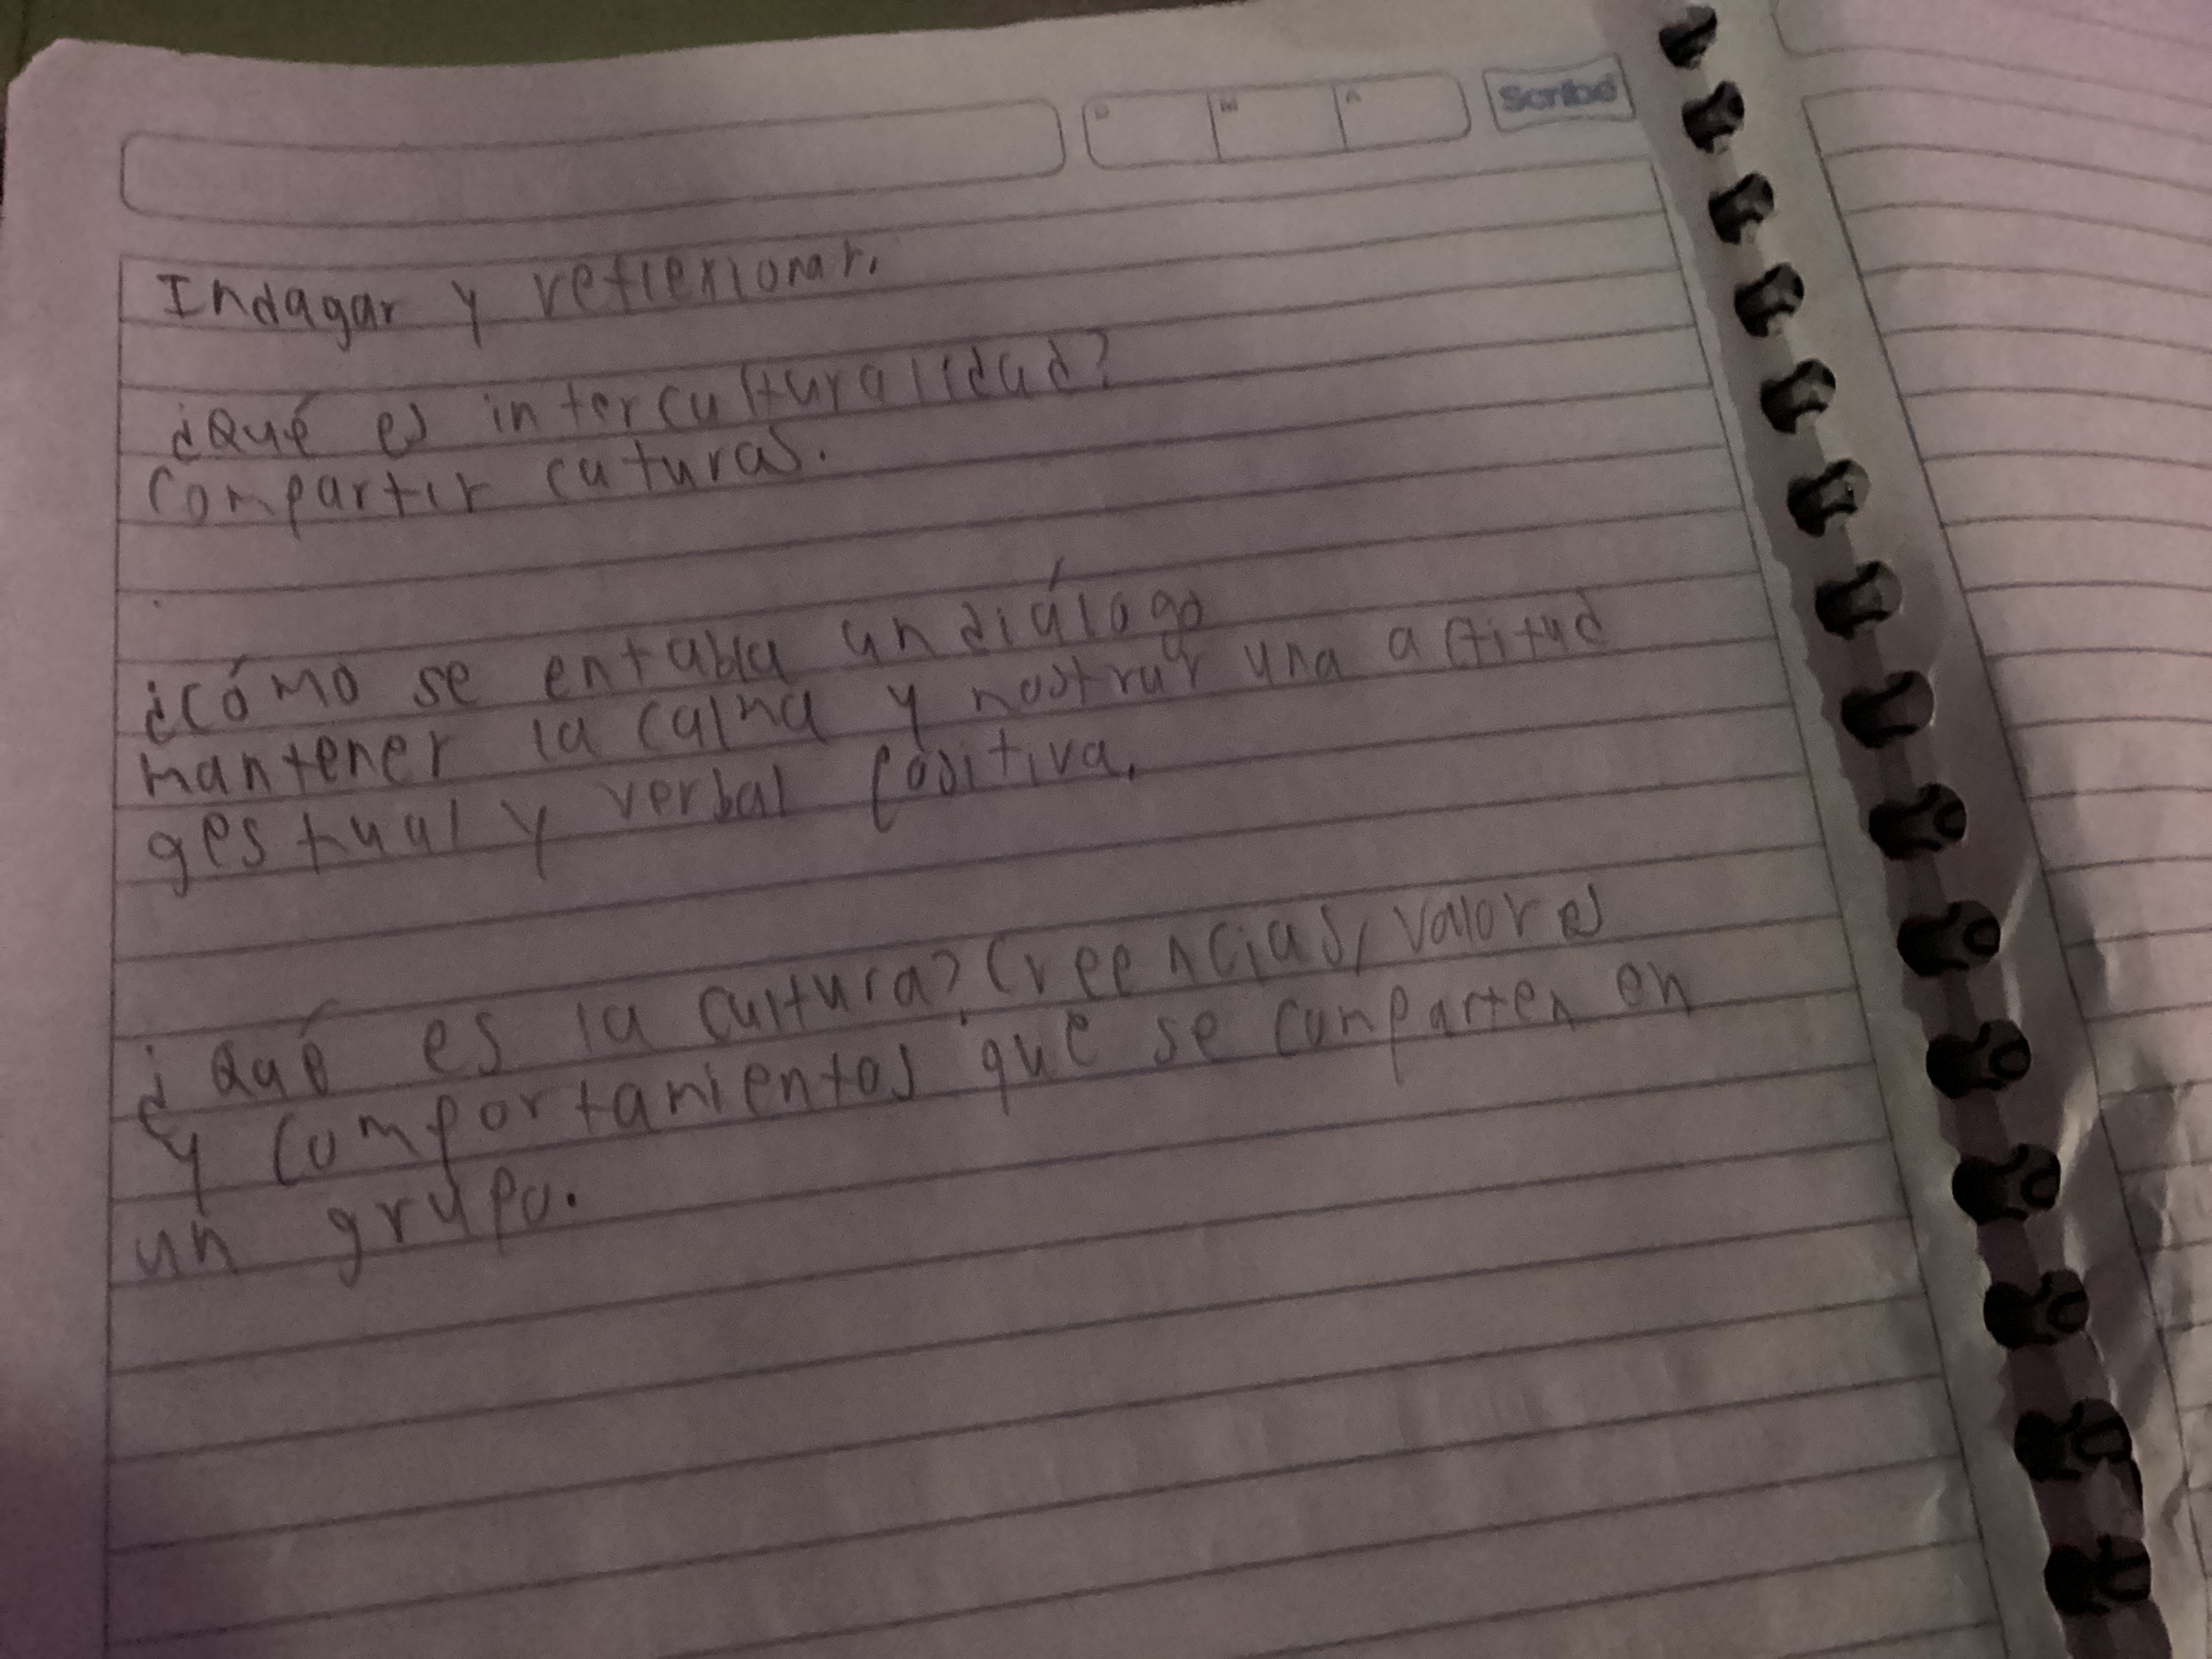 D M A Scribe
Indagar y reflexionar.
¿Qué es interculturalidad?
Compartir cuturas.
¿Cómo se entabla un diálogo
mantener la calma y mostrar una actitud
gestual y verbal positiva.
¿Qué es la cultura? Creencias, valores
y comportamientos que se comparten en
un grupo.